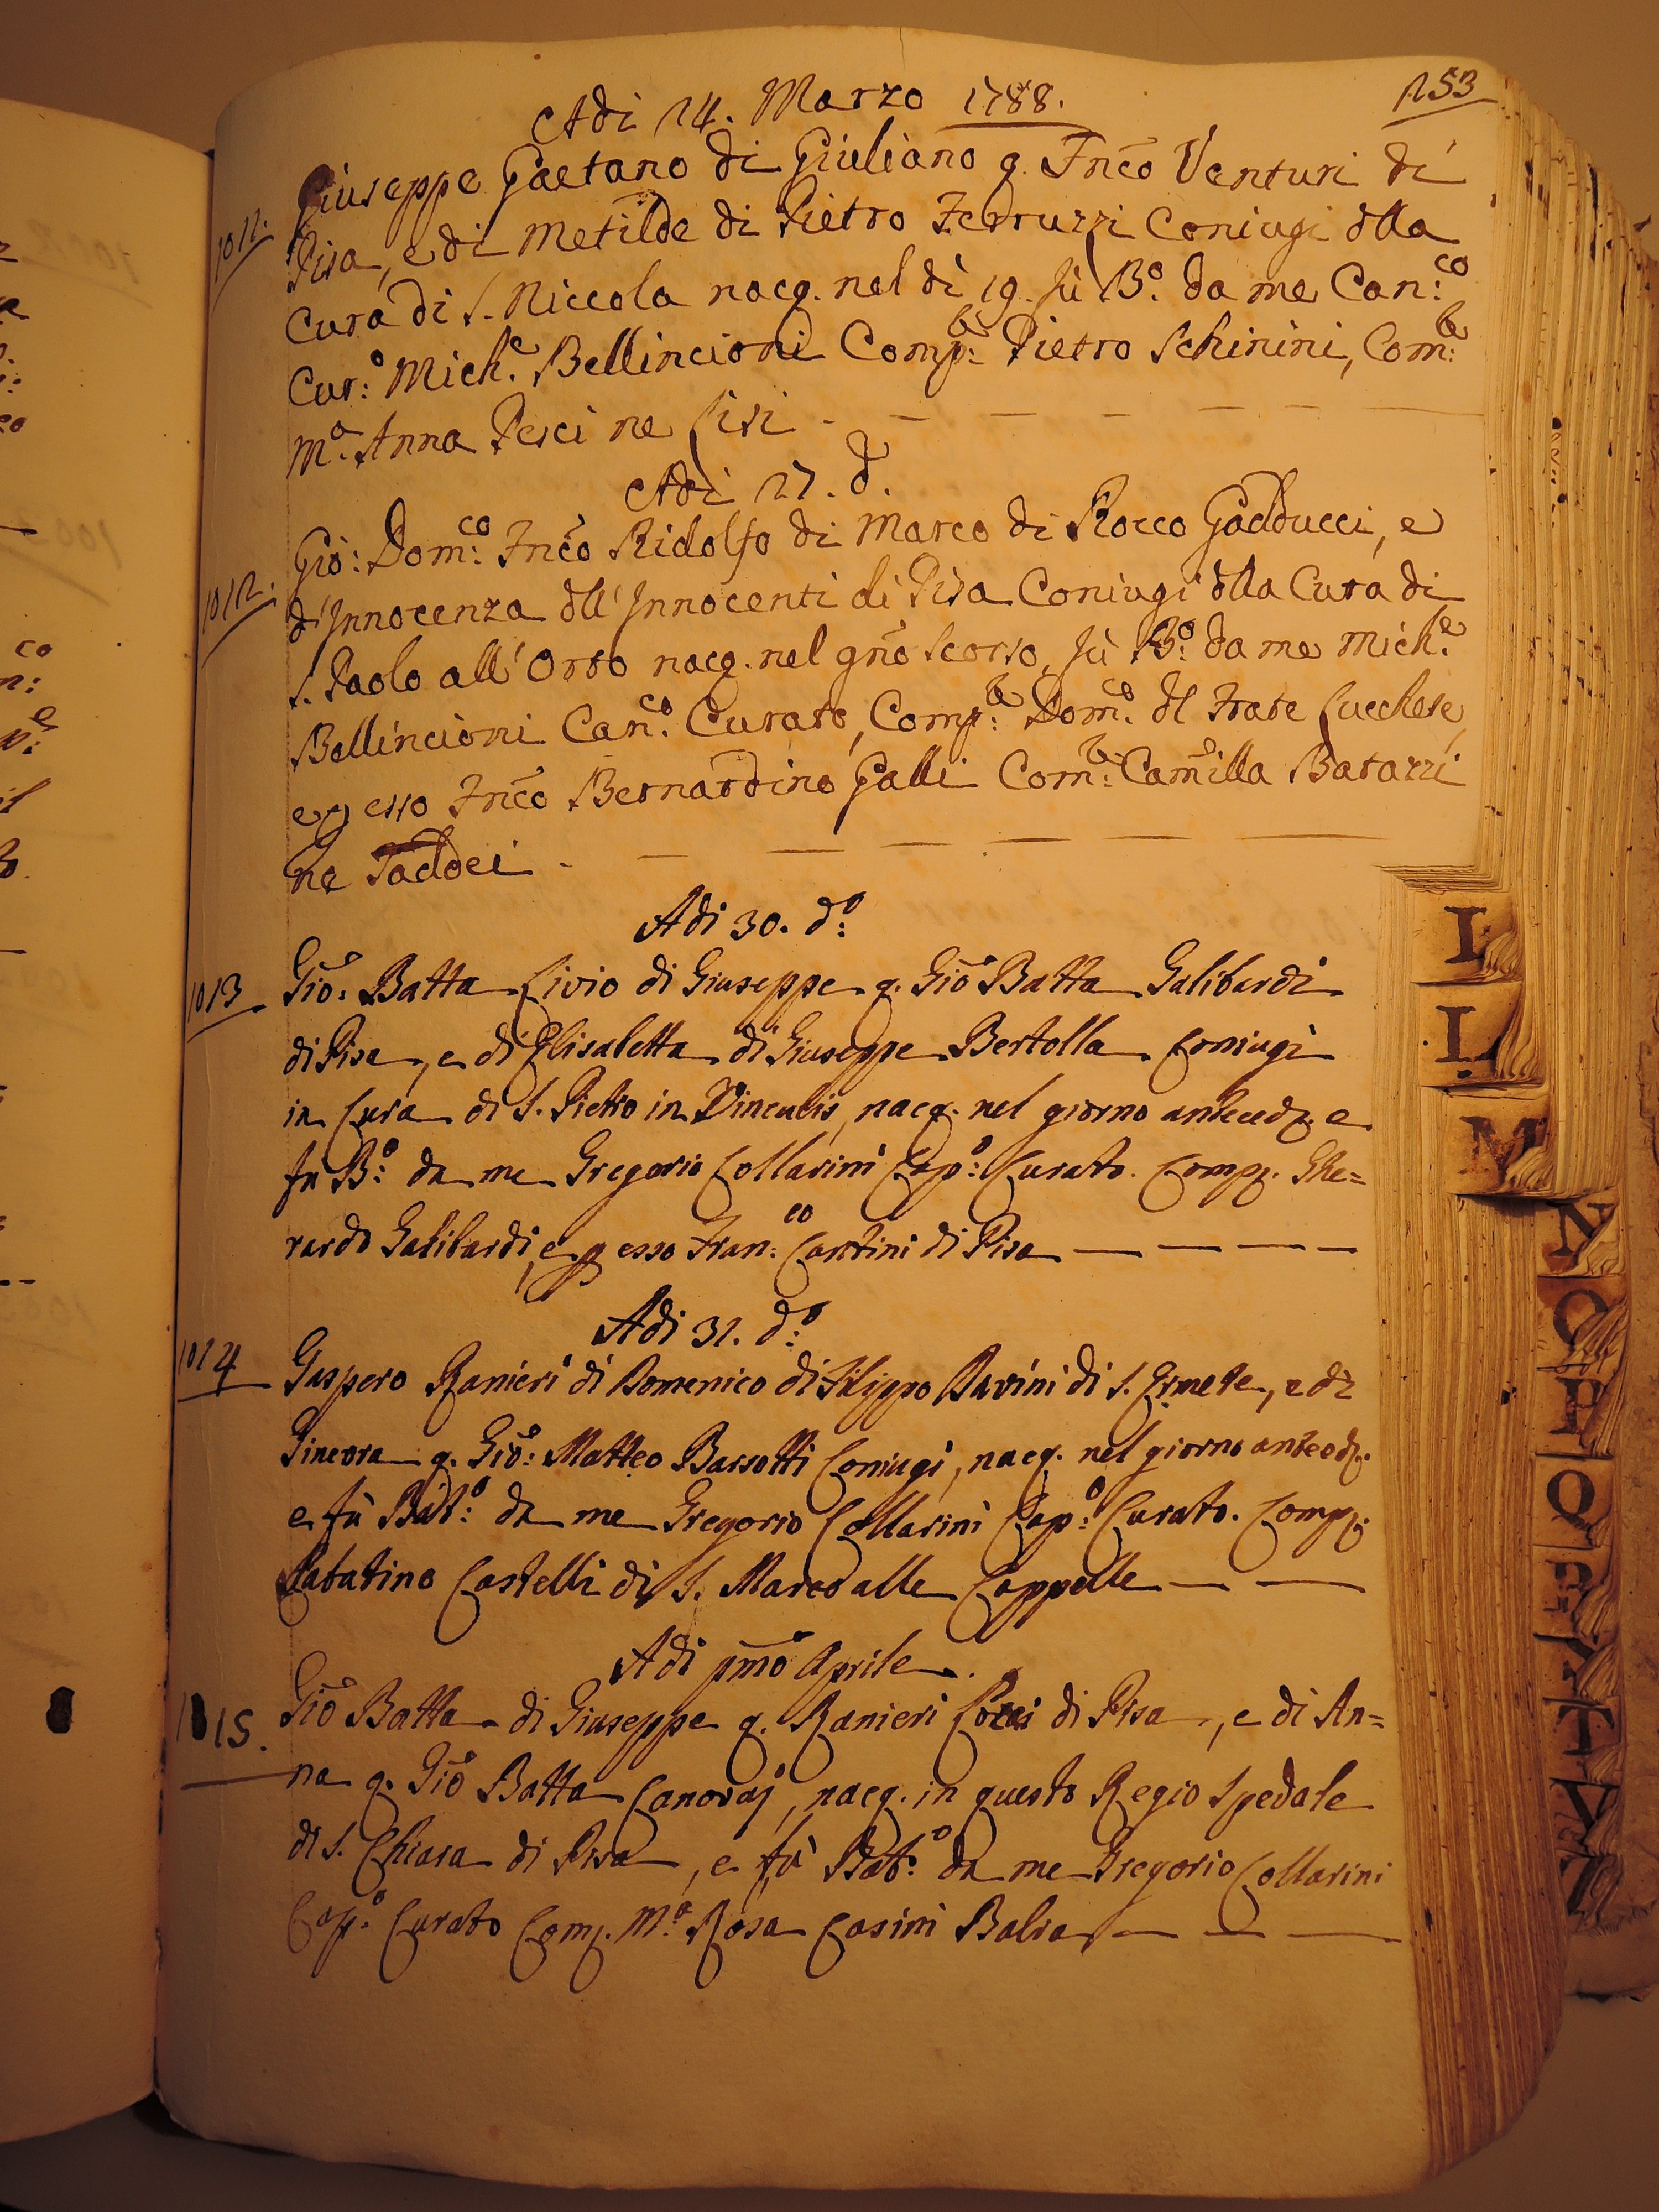 253
Adi 24. Marzo 1788.
Giuseppe Gaetano di Giuliano q. Fnc̃o Venturi di
1011.
Pisa, e di Metilde di Pietro Ferruzzi Coniugi dlla
Cura di S. Niccola nacq. nel dì 19. fù B.o da me Can:co
Cur:o Mich.e Bellincioni Comp:e Pietro Schinini, Com:e
M.a Anna Pesci ne Lisi
Adì 27. d.o
Gio: Dom:co Fnc̃o Ridolfo di Marco di Rocco Gadducci, e
1012.
d'Innocenza dll'Innocenti di Pisa Coniugi dlla Cura di
S. Paolo all'Orto nacq. nel gnõ scorso, fù B:o da me Mich:e
Bellincioni Can:co Curato, Comp:e Dom:co dl Frate Lucchese
e p esso Fnc̃o Bernardino Galli Com:e Camilla Batazzi
ne Taddei
Adi 30. d:o
1013 Gio: Batta Livio di Giuseppe q. Gio Batta Galibardi
di Pisa, e di Elisabetta di Giuseppe Bertolla Coniugi
in Cura di S. Pietro in Vinculis, nacq. nel giorno anteced. e
fù B:o da me Gregorio Collarini Cap:o Curato. Comp. Ghe=
rardo Galibardi, e p esso Fran:co Cantini di Pisa
Adi 31. d:o
1014 Gaspero Ranieri di Domenico di Filippo Bavini di S. Ermete, e di
Ginevra q. Gio: Matteo Barsotti Coniugi, nacq. nel giorno anteced.
e fù Bat:o da me Gregorio Collarini Cap:o Curato. Comp.
Sabatino Castelli di S. Marco alle Cappelle
Adi pmo Aprile.
1015. Gio Batta di Giuseppe q. Ranieri di Pisa, e di An=
na q. Gio Batta Canovaj, nacq. in questo Regio Spedale
di S. Chiara di Pisa, e fù Bat:o da me Gregorio Collarini
Cap:o Curato Comp. M.a Rosa Casini Balia
I
L
M
N
O
P
Q
R
S
T
V
Z